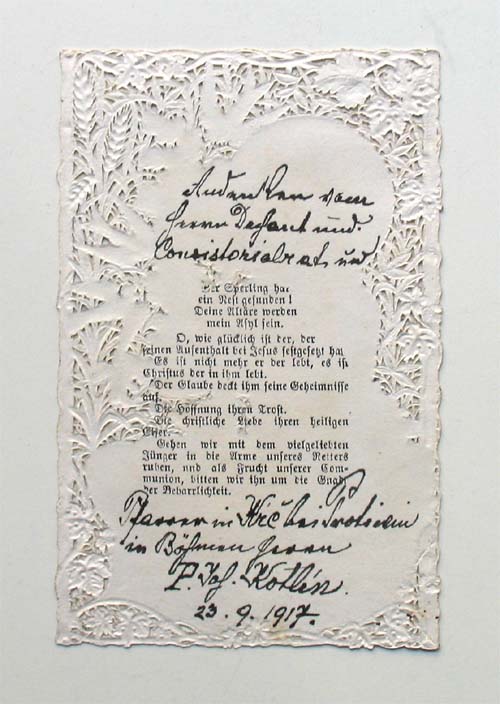 Andenken vom
Herrn Dechant und
Consistorialrat und
Der Sperling hat
ein Nest gefunden!
Deine Altäre werden
mein Asyl sein.
O, wie glücklich ist der, der
seinen Aufenthalt bei Jesus festgesetzt hat
Es ist nicht mehr er der lebt, es is
Christus der in ihm lebt.
Der Glaube deckt ihm seine Geheimnisse
auf.
Die Hoffnung ihren Trost.
Die christliche Liebe ihren heiligen
Eifer.
Gehen wir mit dem vielgeliebten
Jünger in die Arme unseres Retters
ruhen, und als Frucht unserer Com-
munion, bitten wir ihn um die Gnad
der Beharrlichkeit.
Pfarrer in Křč bei Protiwin
in Böhmen Herrn
P. Jos. Kotlín.
23. 9. 1917.